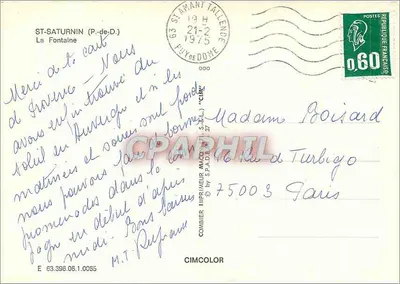 ST-SATURNIN (P.-de-D.)
La Fontaine
63 ST AMANT TALLENDE
19 H
21-2
1975
PUY DE DOME
POSTES
0,60
Merci de la carte
de Provence - Nous
avons enfin trouvé du
soleil en Auvergne et les
matinées et soirées sont froides
nous pouvons faire de bonnes
promenades dans la
en début d'après
midi. Bons baisers
M.T.
Madame Boisard
rue de Turbigo
75003 Paris
CPAPHIL
COMBIER IMPRIMEUR MACON
CIMCOLOR
E 63.396.06.1.0055